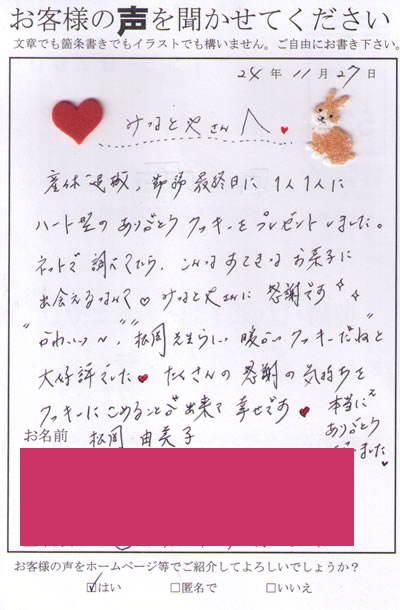 お客様の声を聞かせてください
文章でも箇条書きでもイラストでも構いません。ご自由にお書き下さい。
24年11月27日
みなとやさんへ
産休直前、勤務最終日に1人1人に
ハート型のありがとうクッキーをプレゼントしました。
ネットで調べてたら、こんなすてきなお菓子に
出会えるなんて♥みなとやさんに感謝です
"かわいい〜""松岡先生らしい暖かいクッキーだね"と
大好評でした♥たくさんの感謝の気持ちを
クッキーにこめることが出来て幸せです♥
本当に
ありがとう
ました♥
お名前 松岡 由美子
お客様の声をホームページ等でご紹介してよろしいでしょうか？
☑はい □匿名で □いいえ